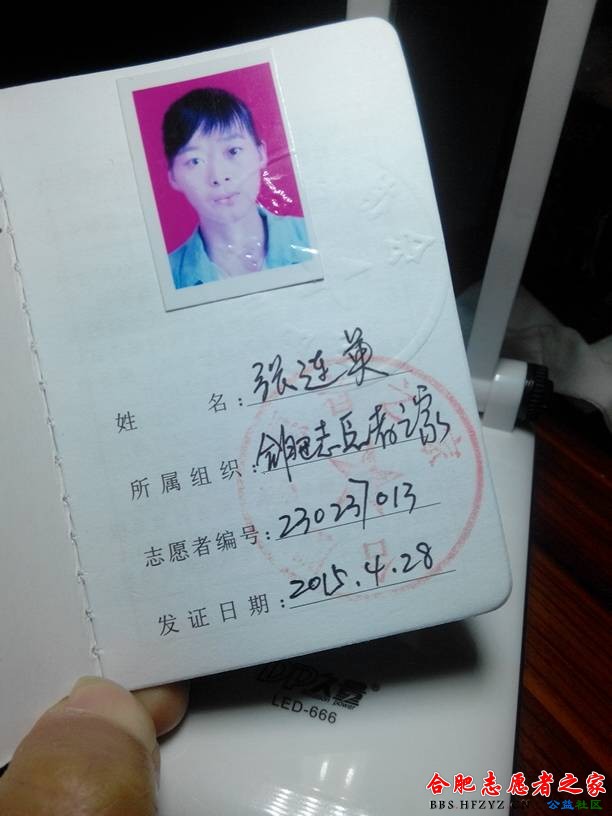 姓 名：张连英
所属组织：合肥志愿者之家
志愿者编号：230237013
发证日期：2015.4.28
DP久量®
LED-666
合肥志愿者之家
BBS.HFZYZ.CN 公益社区